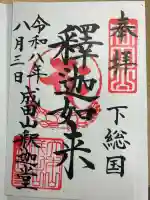 奉拝
下総国
釋迦如来
令和八年
八月三日
成田山釈迦堂